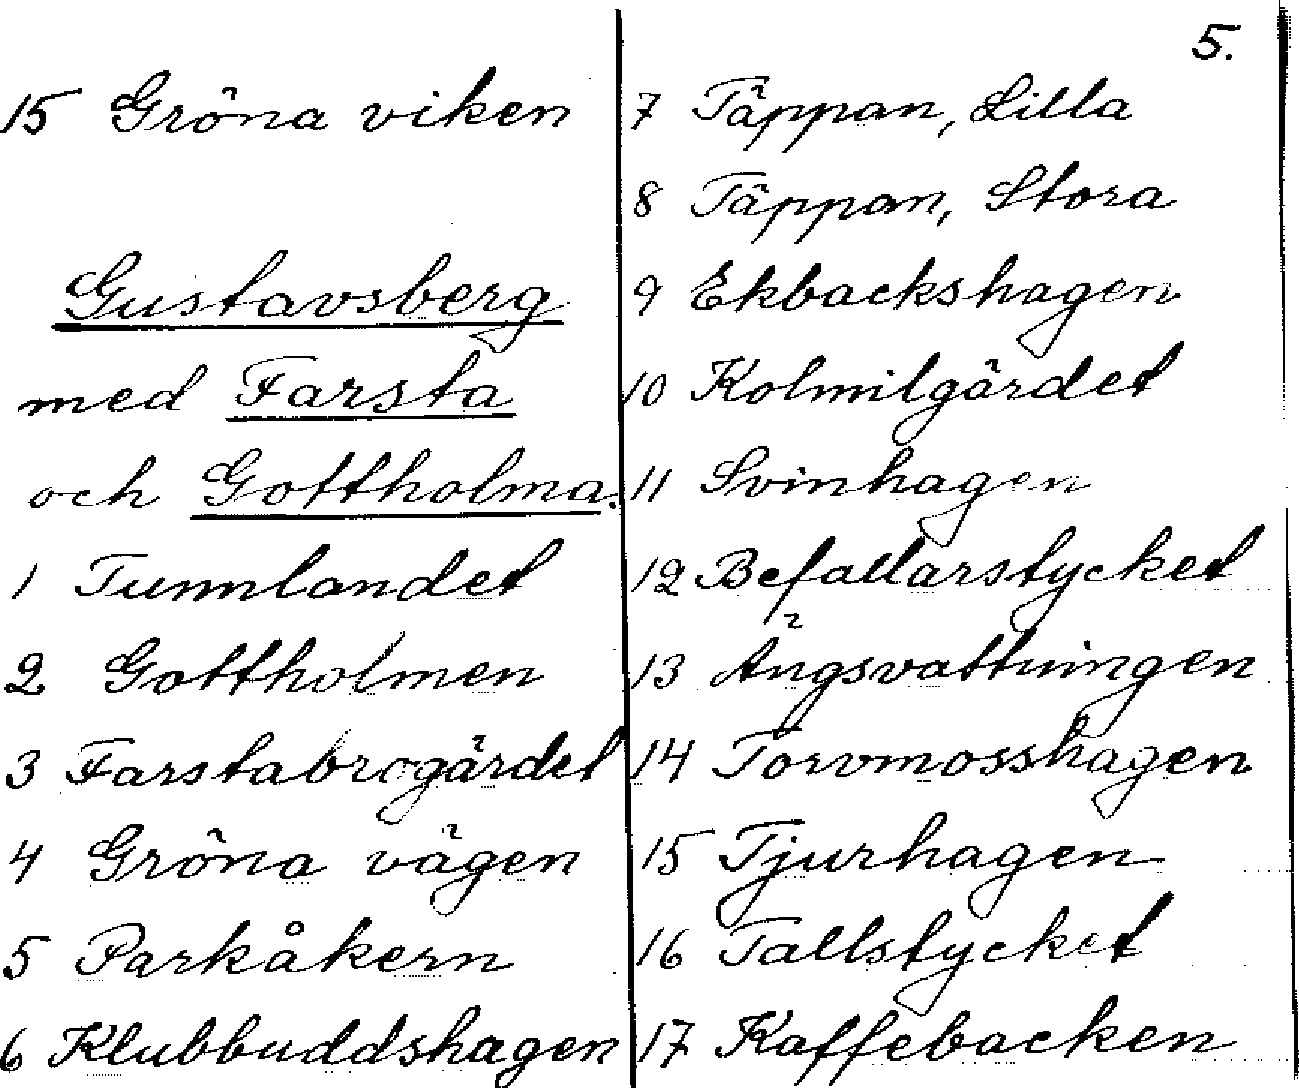 5.
15 Gröna viken
Gustavsberg
med Farsta
och Gottholma.
1 Tunnlandet
2 Gottholmen
3 Farstabrogärdet
4 Gröna vägen
5 Parkåkern
6 Klubbuddshagen
7 Täppan, Lilla
8 Täppan, Stora
9 Ekbackshagen
10 Kolmilgärdet
11 Svinhagen
12 Befallarstycket
13 Ängsvattningen
14 Torvmosshagen
15 Tjurhagen
16 Tallstycket
17 Kaffebacken